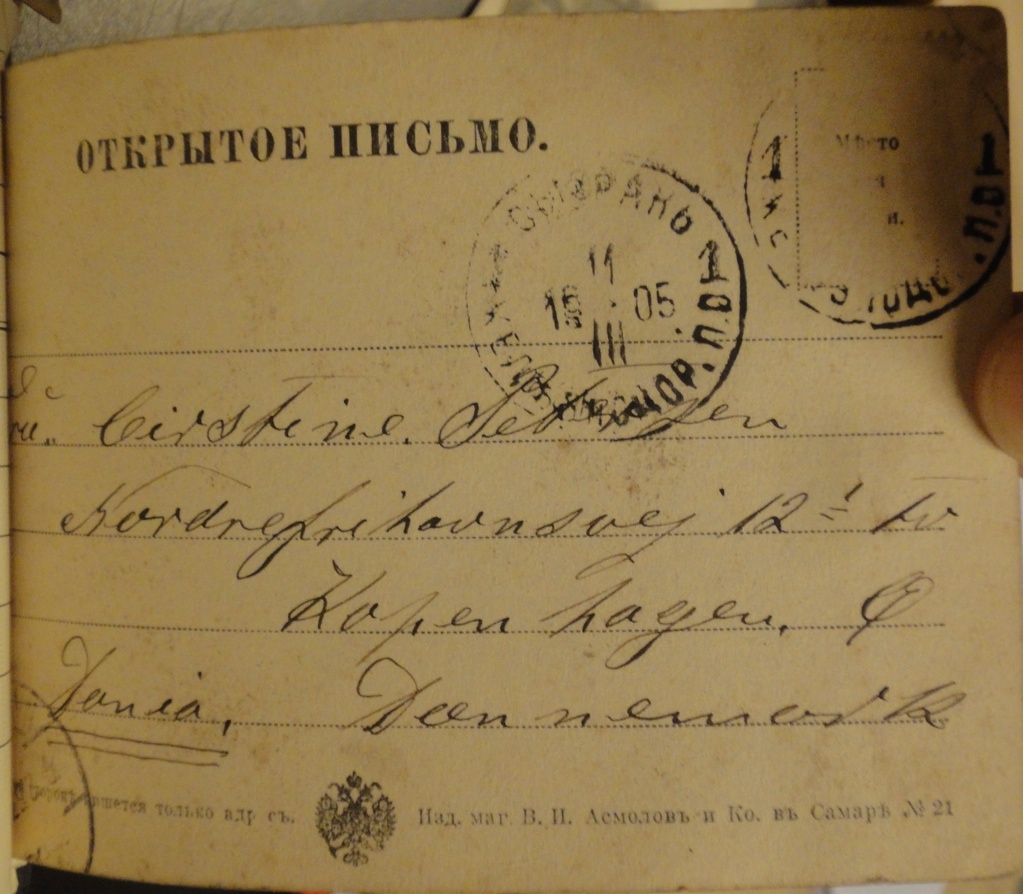 ОТКРЫТОЕ ПИСЬМО.
Мѣсто
и.
1 1
П.О
СЫЗРАНЬ
1 1
11
III
05
ДОР. П.О
Cirstine. Petersen
Nordrefrihavnsvej 12 1 tv
Kopenhagen. Ø
Dania. Daennemark
пишется только адр съ.
Изд. маг. В. И. Асмоловъ и Ко. въ Самарѣ № 21